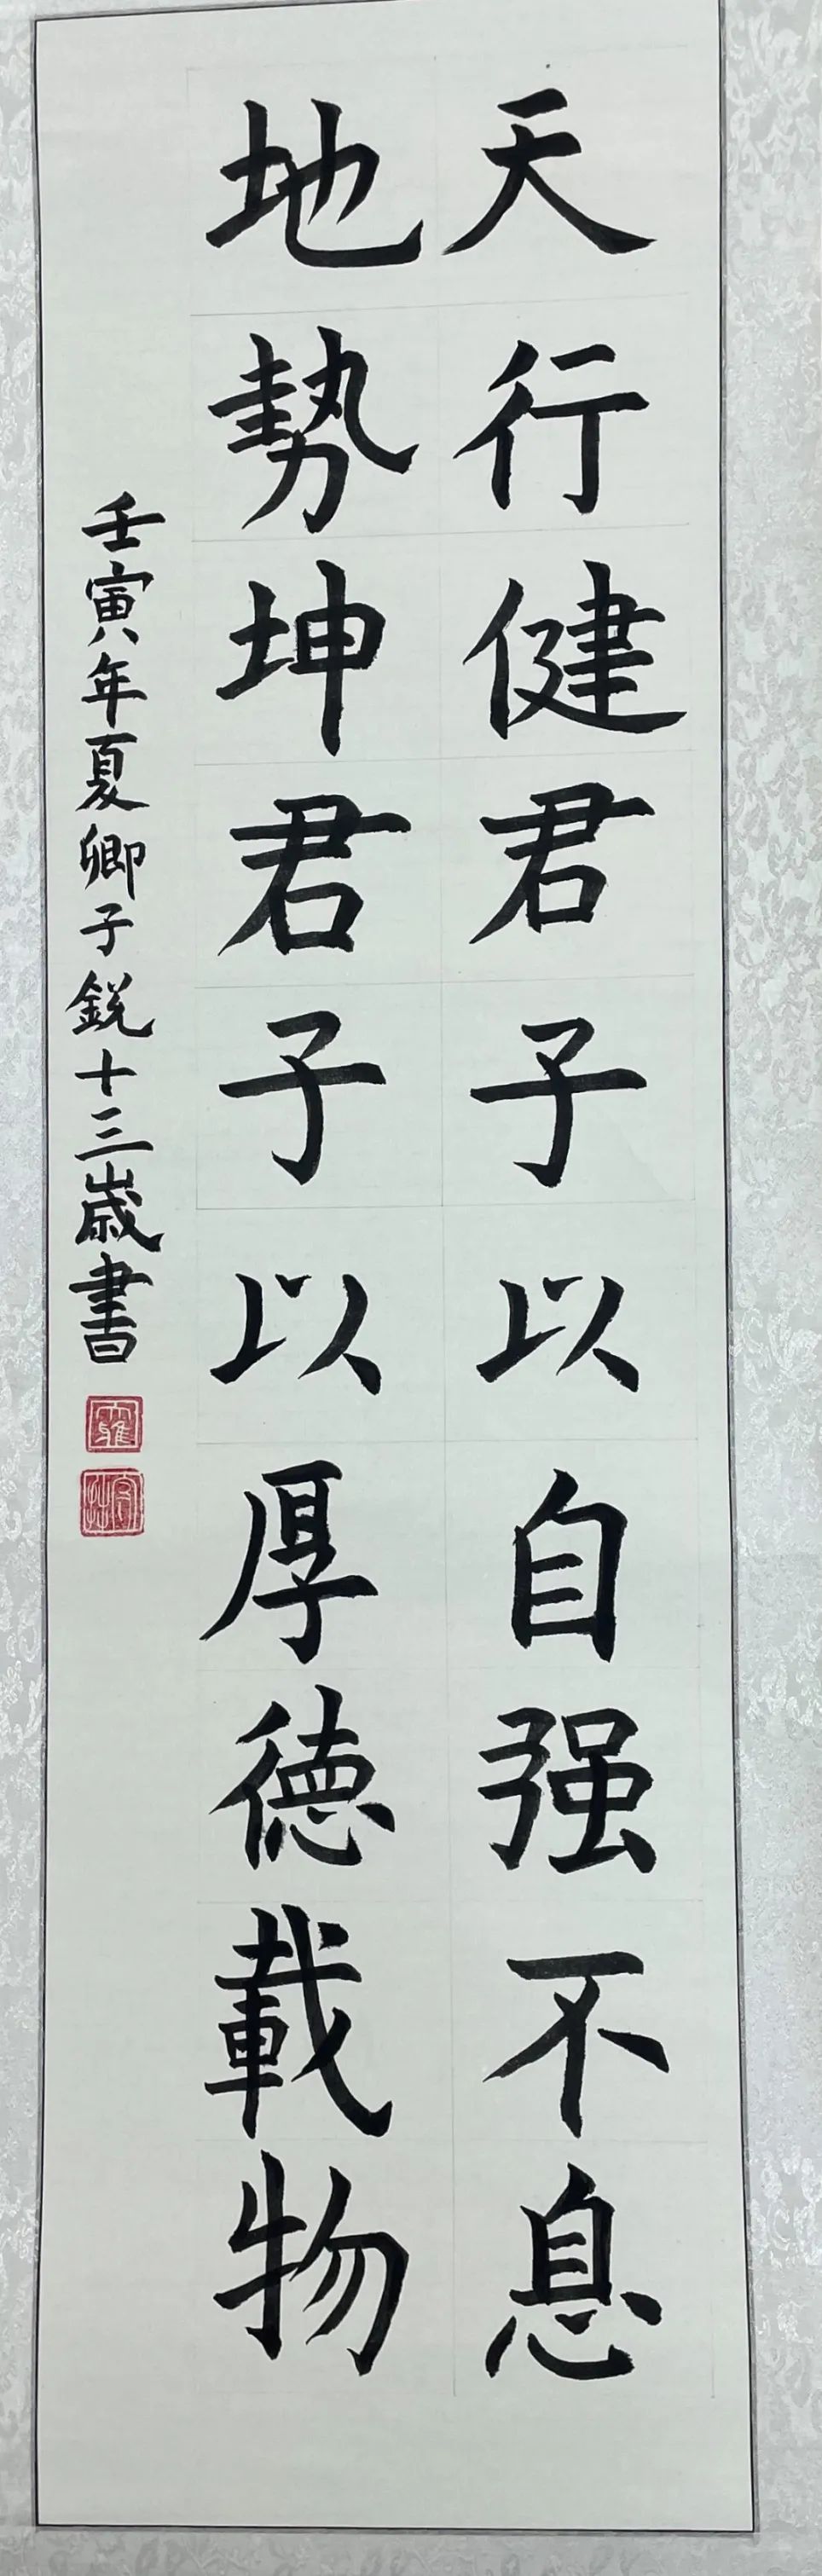 天行健君子以自强不息
地勢坤君子以厚德載物
壬寅年夏卿子銳十三歲書